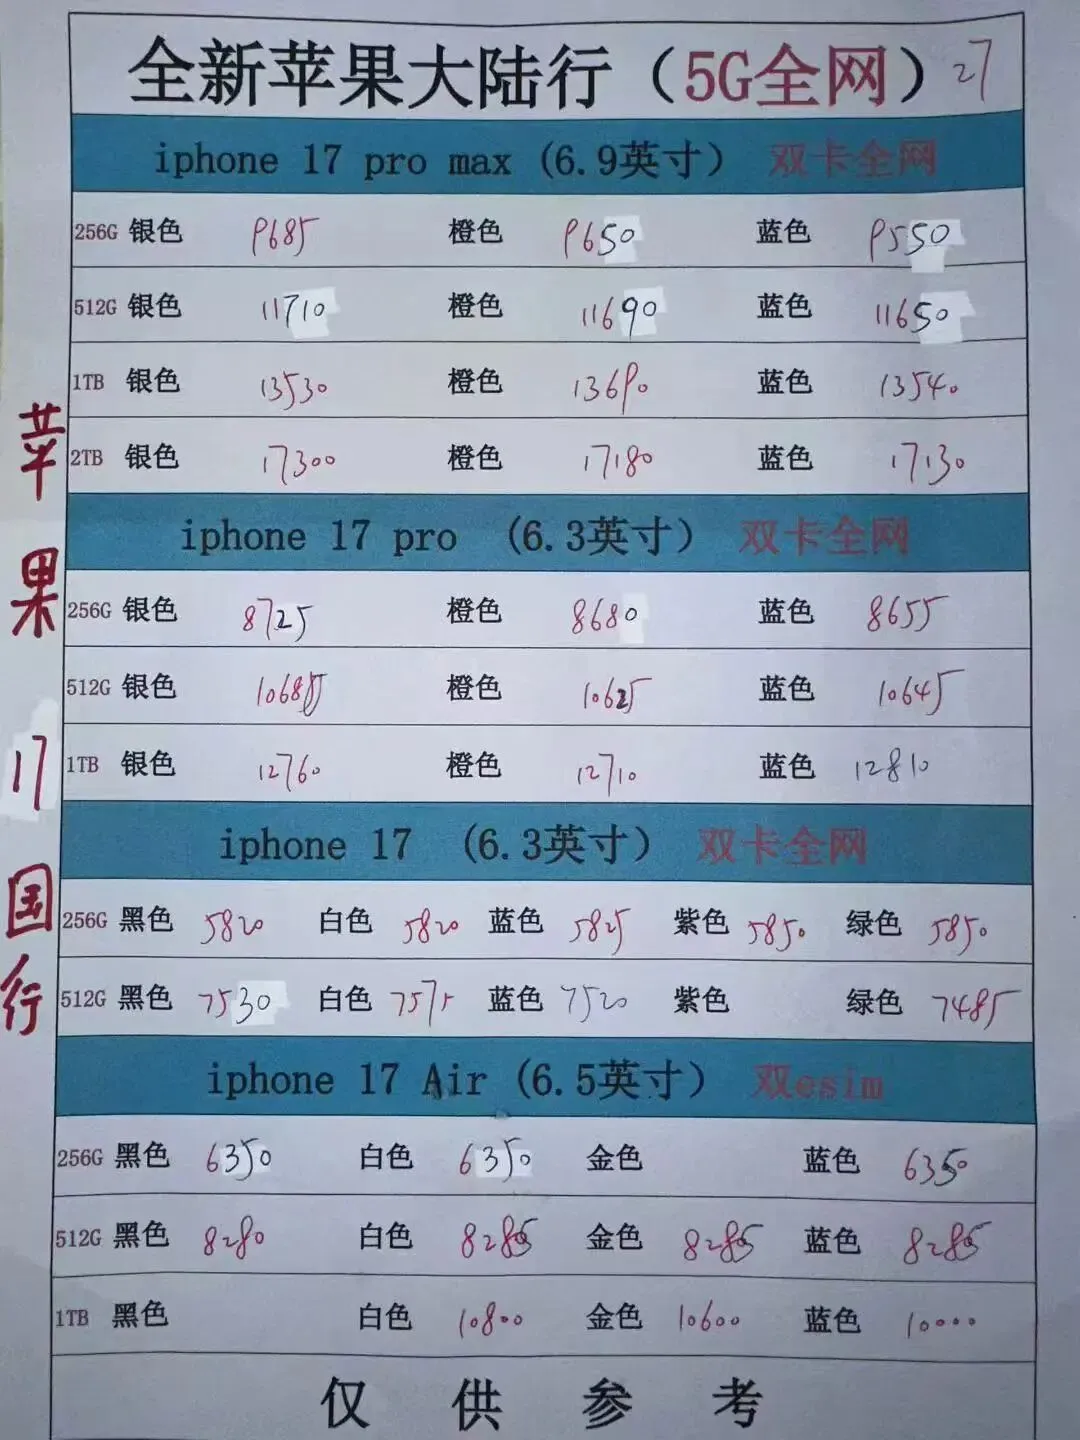 全新苹果大陆行（5G全网） 27
iphone 17 pro max (6.9英寸） 双卡全网
256G 银色 9685 橙色 9650 蓝色 9550
512G 银色 11710 橙色 11690 蓝色 11650
1TB 银色 13530 橙色 13690 蓝色 13540
2TB 银色 17300 橙色 17180 蓝色 17130
iphone 17 pro （6.3英寸） 双卡全网
256G 银色 8725 橙色 8680 蓝色 8655
512G 银色 橙色 10625 蓝色 10645
1TB 银色 12760 橙色 12710 蓝色 12810
iphone 17 （6.3英寸） 双卡全网
256G 黑色 5820 白色 5820 蓝色 5825 紫色 5850 绿色 5850
512G 黑色 7530 白色 7575 蓝色 7520 紫色 绿色 7485
iphone 17 Air (6.5英寸） 双esim
256G 黑色 6350 白色 6350 金色 蓝色 6350
512G 黑色 8280 白色 8285 金色 8285 蓝色 8285
1TB 黑色 白色 10800 金色 10600 蓝色 10000
仅供参考
苹果17国行